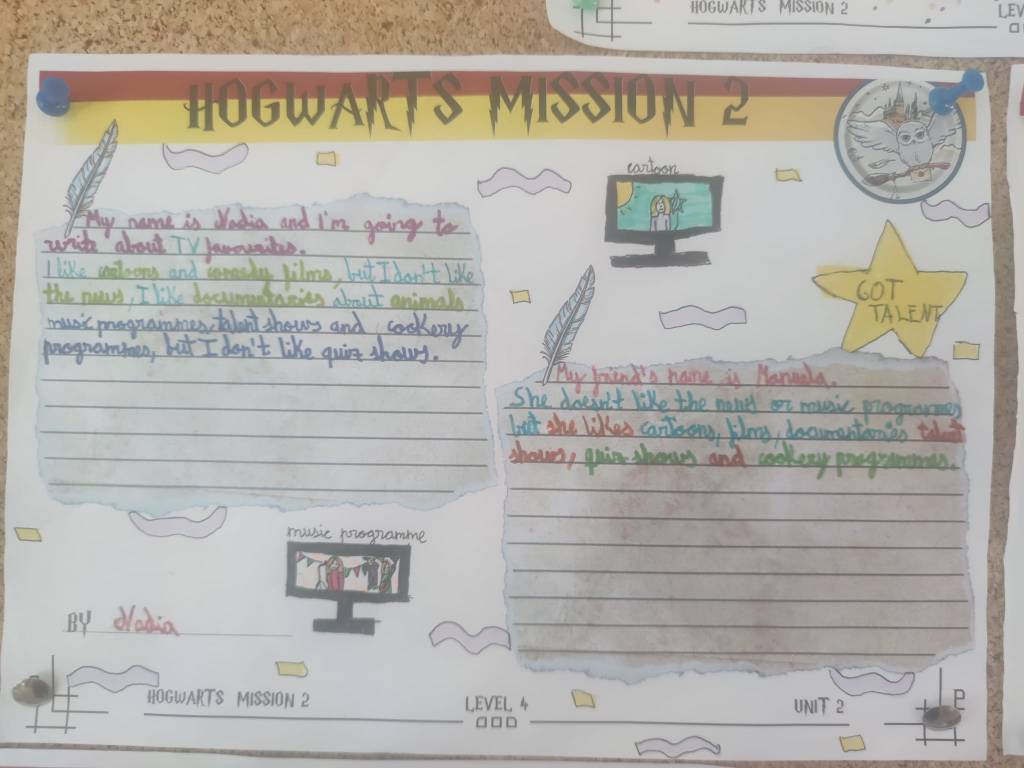 HOGWARTS MISSION 2
HOGWARTS MISSION 2
cartoon
My name is Nadia and I'm going to
write about TV favourites.
I like cartoons and comedy films, but I don't like
the news, I like documentaries about animals
music programmes, talent shows and cookery
programmes, but I don't like quiz shows.
GOT
TALENT
My friend's name is Manuela.
She doesn't like the news or music programmes
but she likes cartoons, films, documentaries talent
shows, quiz shows and cookery programmes.
music programme
BY Nadia
HOGWARTS MISSION 2
LEVEL 4
UNIT 2